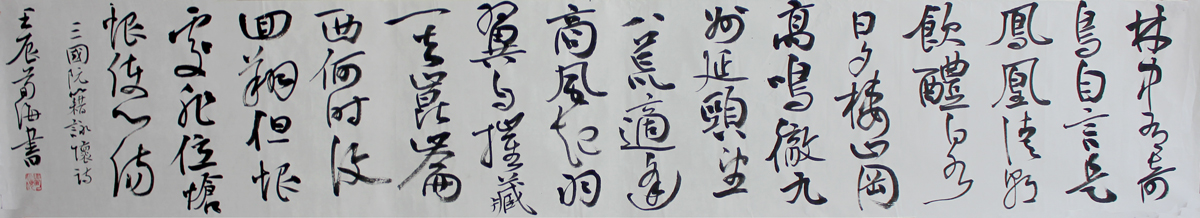 林中有奇
鳥自言是
鳳凰清朝
飲醴泉
日夕棲山岡
高鳴徹九
州延頸望
八荒適逢
商風起羽
翼自摧藏
一去崑崙
西何時復
回翔但恨
處非位愴
悢使心傷
三國阮籍詠懷詩
壬辰海書